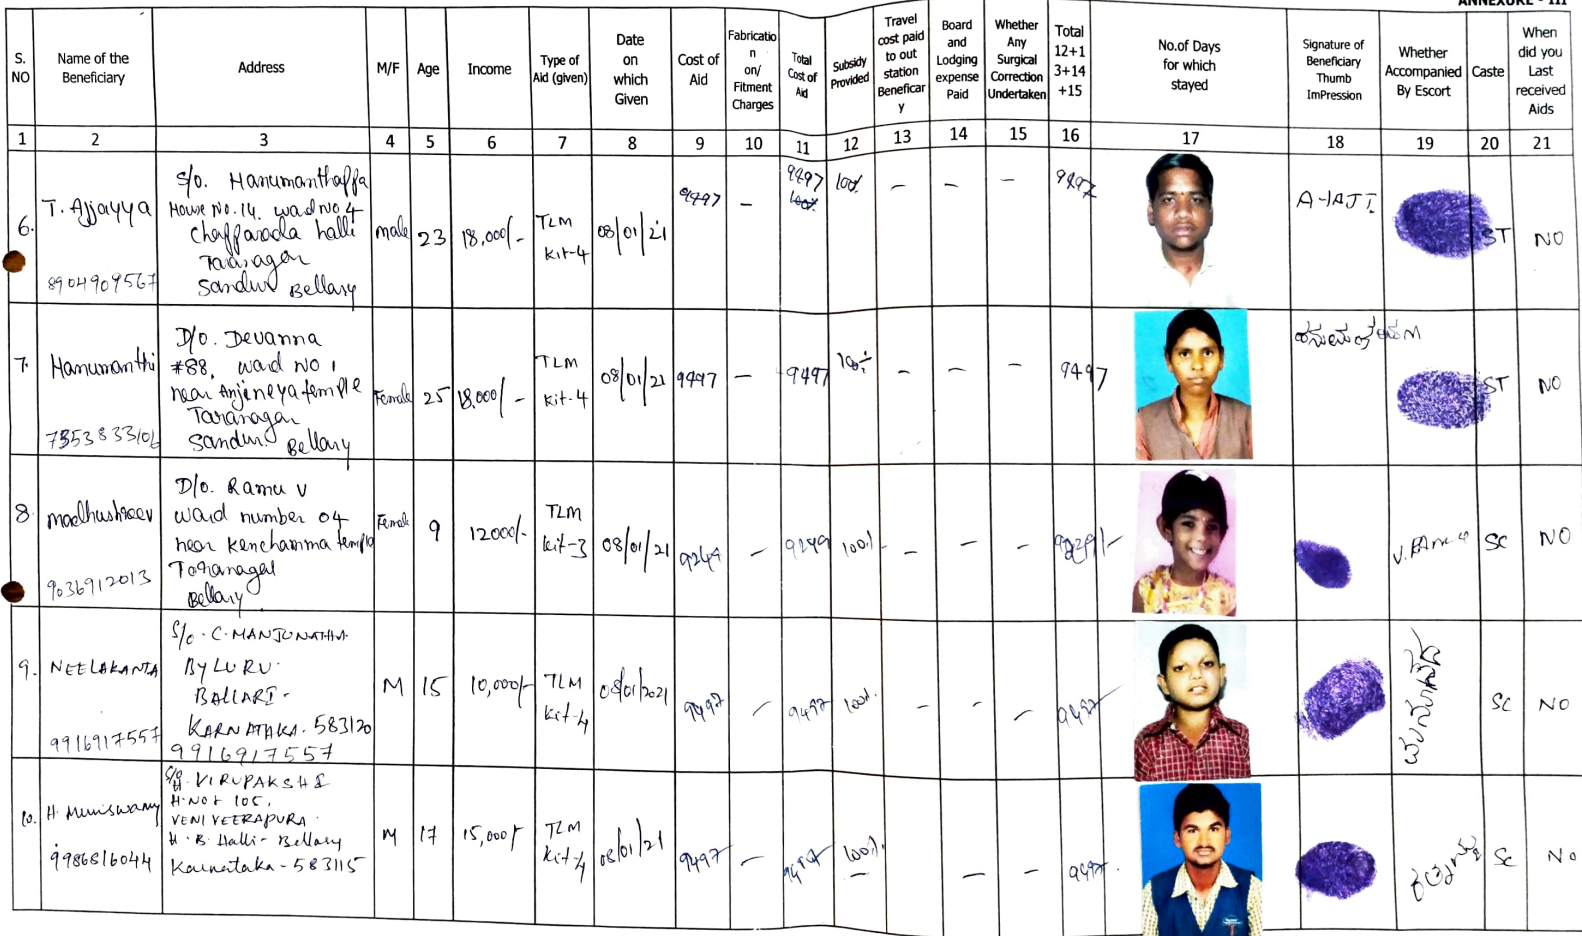 ANNEXURE - III
S. NO
Name of the Beneficiary
Address
M/F
Age
Income
Type of Aid (given)
Date on which Given
Cost of Aid
Fabricatio n on/ Fitment Charges
Total Cost of Aid
Subsidy Provided
Travel cost paid to out station Beneficar y
Board and Lodging expense Paid
Whether Any Surgical Correction Undertaken
Total 12+1 3+14 +15
No.of Days for which stayed
Signature of Beneficiary Thumb ImPression
Whether Accompanied By Escort
Caste
When did you Last received Aids
1 2 3 4 5 6 7 8 9 10 11 12 13 14 15 16 17 18 19 20 21
6.
T. Ajjayya
8904909567
S/o. Hanumanthappa
House No.14. ward No 4
Chapparada halli
Taranagar
Sandur Bellary
male
23
18,000/-
TLM
Kit-4
08/01/21
9497
-
9497
100%
-
-
-
9497
ST
NO
7.
Hanumanthi
7353833106
D/o. Devanna
#88, ward NO 1
near Anjineya temple
Taranagar
Sandur. Bellary
Female
25
18,000/-
TLM
Kit-4
08/01/21
9497
-
9497
100%
-
-
-
9497
ST
NO
8.
madhushreev
9036912013
D/o. Ramu V
Ward number 04
near Kenchamma temple
Toranagal
Bellary
Female
9
12000/-
TLM
Kit-3
08/01/21
9249
-
9249
100%
-
-
-
SC
NO
9.
NEELAKANTA
9916917557
S/o. C. MANJUNATHA.
BYLURU.
BALLARI-
KARNATAKA. 583120
9916917557
M
15
10,000/-
TLM
Kit-4
08/01/2021
9497
-
9497
100%
-
-
-
9497
SC
NO
10.
H. Muniswamy
9986816044
S/o
H. VIRUPAKSHI
H.NO# 105,
VENIVEERAPURA.
H. B. Halli- Bellary
Karnataka-583115
M
17
15,000/-
TLM
Kit-4
08/01/21
9497
-
9497
100%
-
-
-
9497
SC
NO